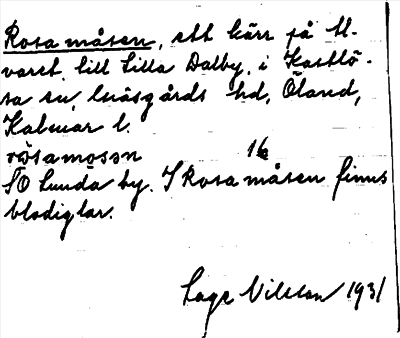 Rosa måsen, ett kärr på Al-
varet till Lilla Dalby, i Kastlö-
sa sn, Gräsgårds hd, Öland,
Kalmar l.
rosamosǝn 16
SO Lunda by. I Rosa måsen finns
blodiglar.
Lage Nilsson 1931